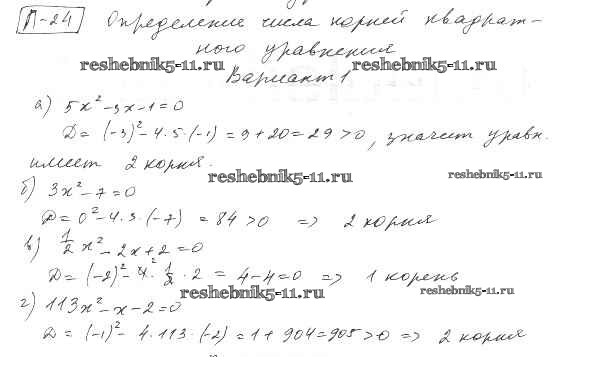 П-24 Определение числа корней квадрат-
ного уравнения
reshebnik5-11.ru reshebnik5-11.ru
Вариант 1
а) 5x² - 3x - 1 = 0
D = (-3)² - 4·5·(-1) = 9 + 20 = 29 > 0, значит уравн.
имеет 2 корня.
reshebnik5-11.ru reshebnik5-11.ru
б) 3x² - 7 = 0
D = 0² - 4·3·(-7) = 84 > 0 => 2 корня
в) 1/2 x² - 2x + 2 = 0
D = (-2)² - 4·1/2·2 = 4 - 4 = 0 => 1 корень
reshebnik5-11.ru reshebnik5-11.ru
г) 113x² - x - 2 = 0
D = (-1)² - 4·113·(-2) = 1 + 904 = 905 > 0 => 2 корня